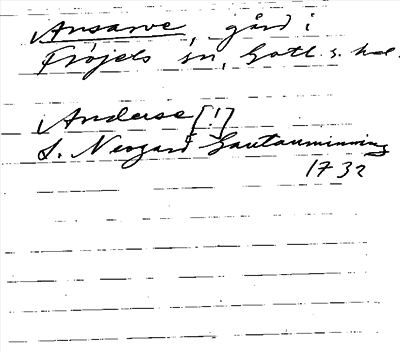 Ansarve, gård i
Fröjels sn, Gotl. s. hd.
Anderse [!]
S. Neogard Gautauminning
1732